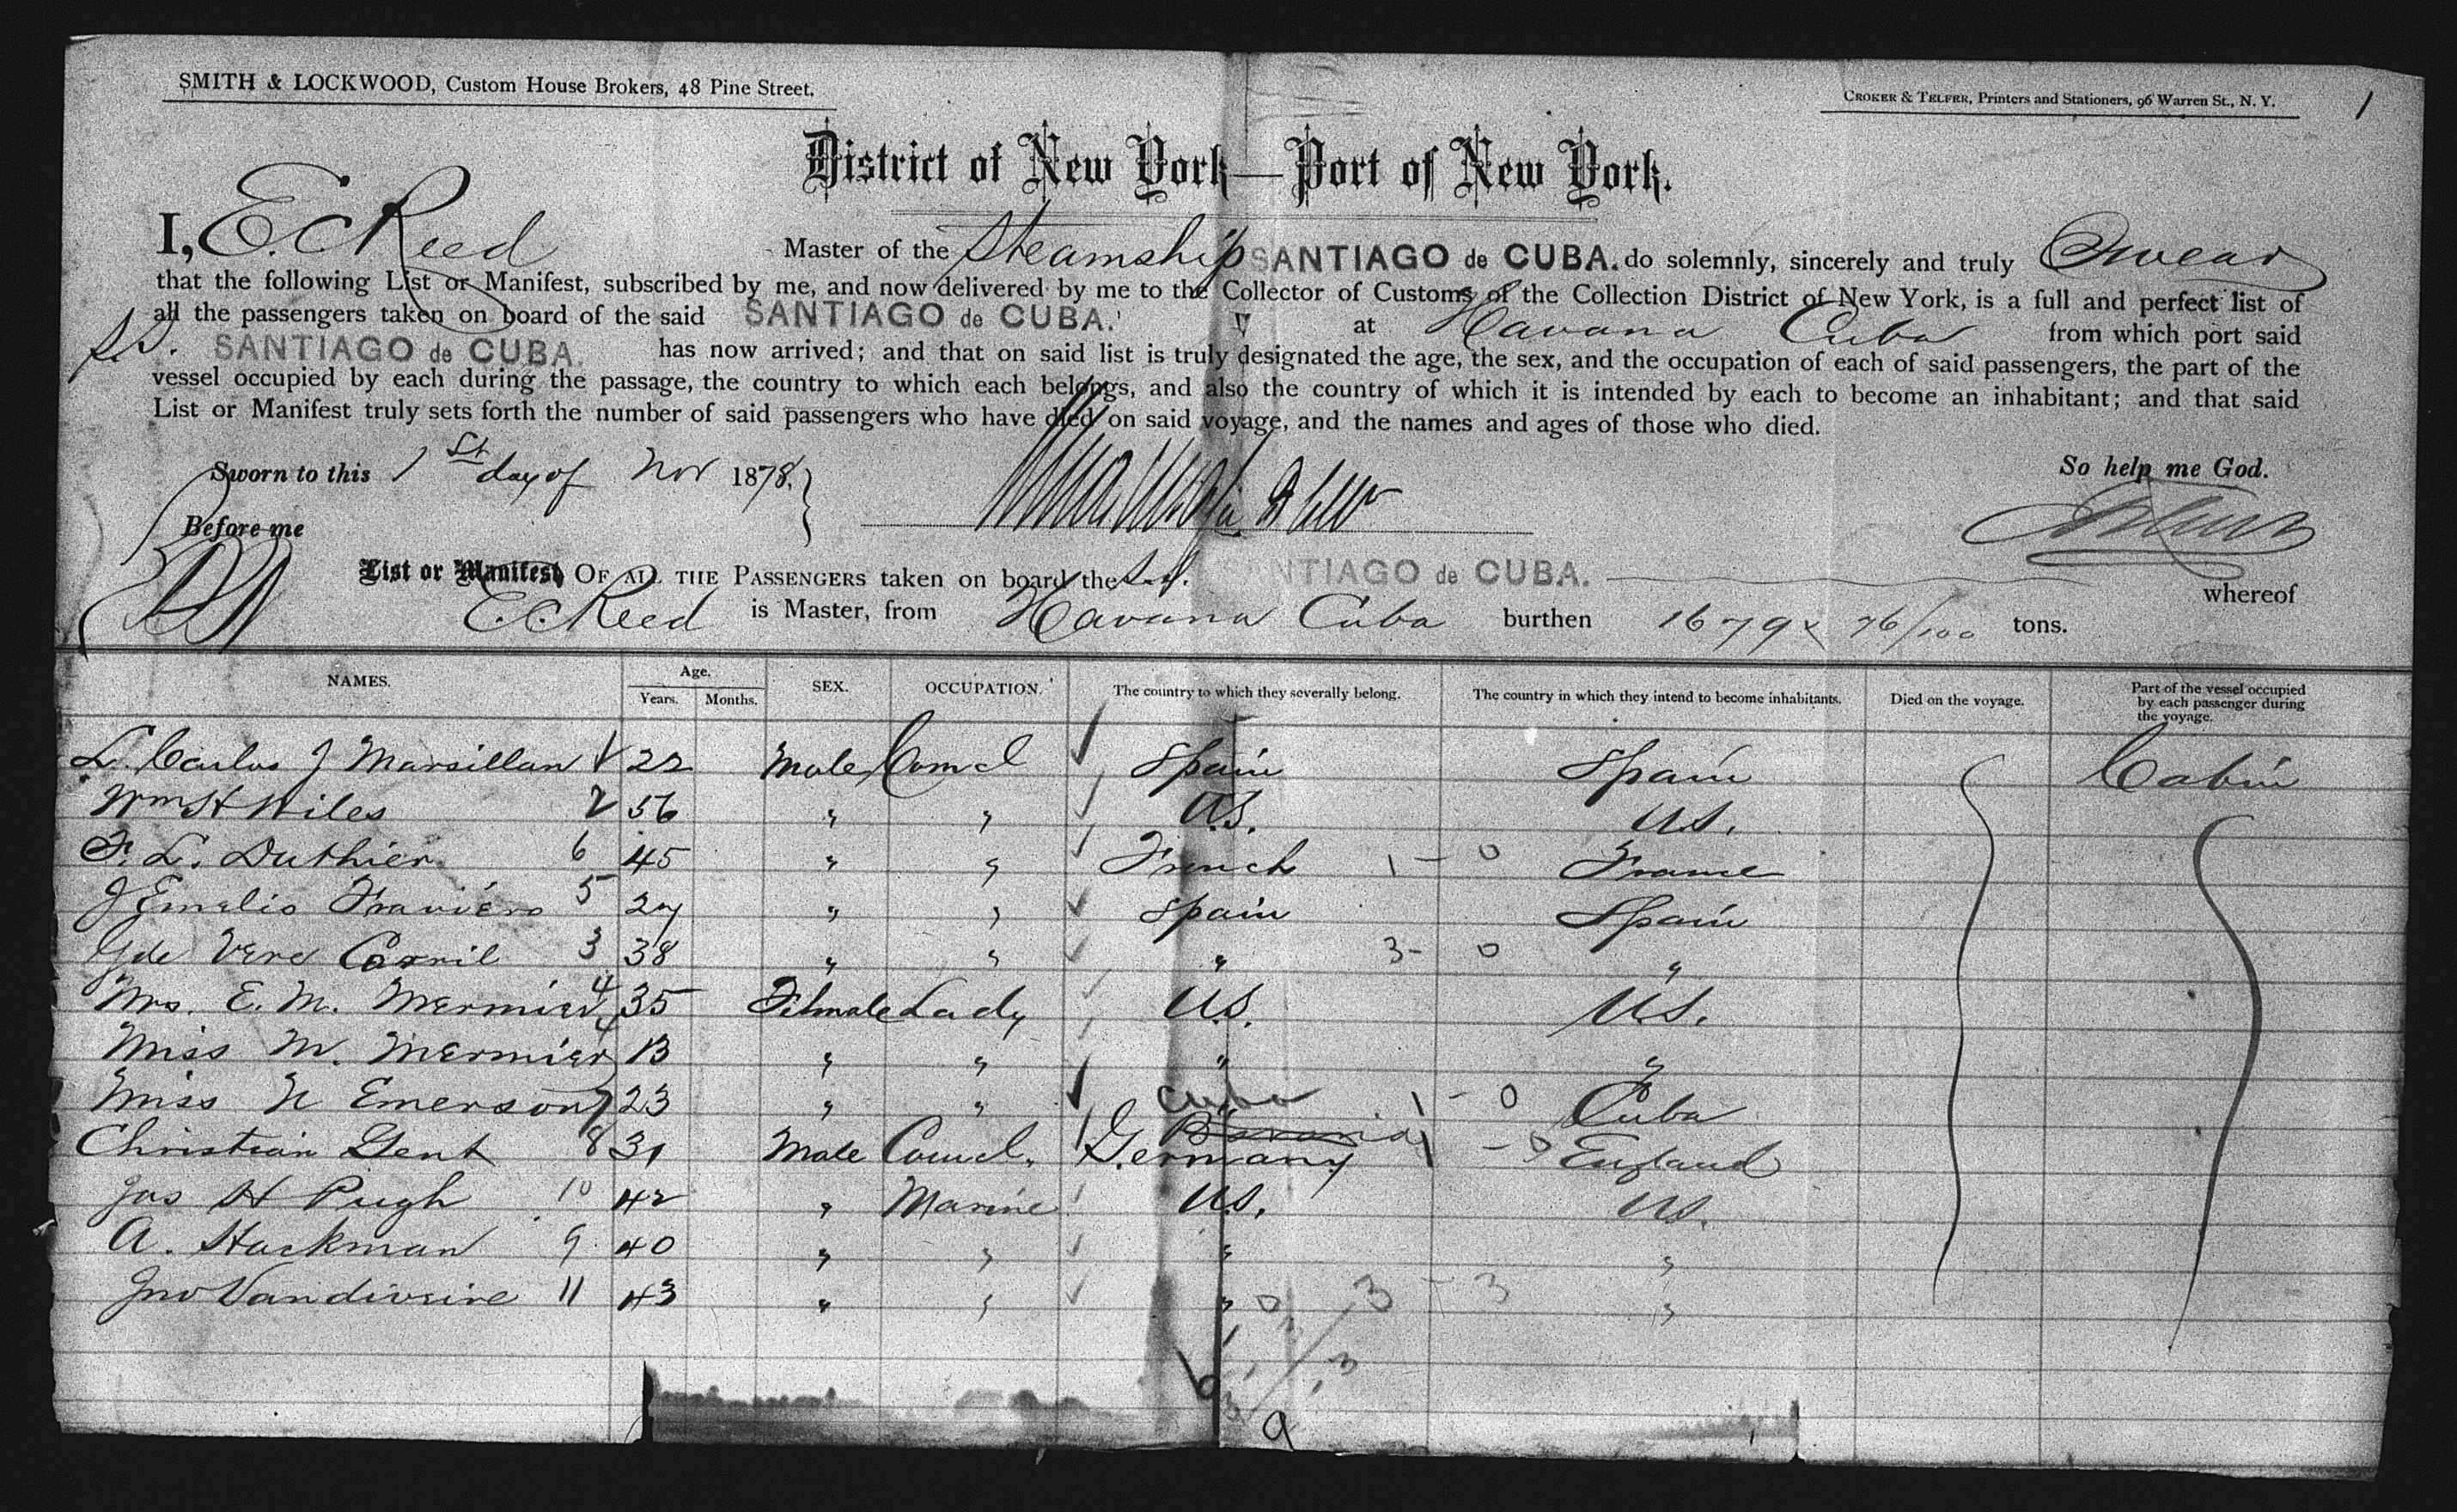 SMITH & LOCKWOOD, Custom House Brokers, 48 Pine Street.
CROKER & TELFER, Printers and Stationers, 96 Warren St., N. Y.
1
District of New York—Port of New York.
I, E. C Reed Master of the Steamship SANTIAGO de CUBA. do solemnly, sincerely and truly Swear
that the following List or Manifest, subscribed by me, and now delivered by me to the Collector of Customs of the Collection District of New York, is a full and perfect list of
all the passengers taken on board of the said SANTIAGO de CUBA. at Havana Cuba from which port said
S.S. SANTIAGO de CUBA. has now arrived; and that on said list is truly designated the age, the sex, and the occupation of each of said passengers, the part of the
vessel occupied by each during the passage, the country to which each belongs, and also the country of which it is intended by each to become an inhabitant; and that said
List or Manifest truly sets forth the number of said passengers who have died on said voyage, and the names and ages of those who died.
Sworn to this 1st day of Nov 1878.
So help me God.
Before me
List or Manifest OF ALL THE PASSENGERS taken on board the S.S. NTIAGO de CUBA. whereof
E. C. Reed is Master, from Havana Cuba burthen 1679 & 76/100 tons.
NAMES. Age. Years. Months. SEX. OCCUPATION. The country to which they severally belong. The country in which they intend to become inhabitants. Died on the voyage. Part of the vessel occupied by each passenger during the voyage.
L. Carlos J Marsillan 1 22 Male Comcl Spain Spain Cabin
Wm H Hiles 2 56 " " U.S. U.S.
F. L. Duthier 6 45 " " French 1 - 0 France
J Emelio Fraviero 5 27 " " Spain Spain
J de Vere Carril 3 38 " " " 3 - 0 "
Mrs. E. M. Mermier 4 35 Female Lady U.S. U.S.
Miss M. Mermier 4 13 " " " "
Miss N Emerson 7 23 " " Cuba 1 - 0 Cuba
Christian Gent 8 31 Male Comcl. Germany 1 - 0 England
Jas H Pugh 10 42 " Marine U.S. U.S.
A. Hackman 9 40 " " " "
Jno Vandiveire 11 43 " " " 3 - 3 "
9